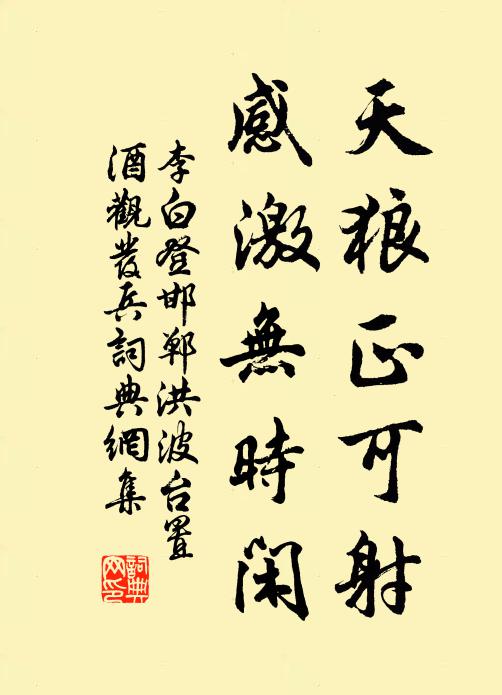 天狼正可射
感激無時閑
李白登邯鄲洪波台置
酒觀發兵詞典網集
詞典
网印